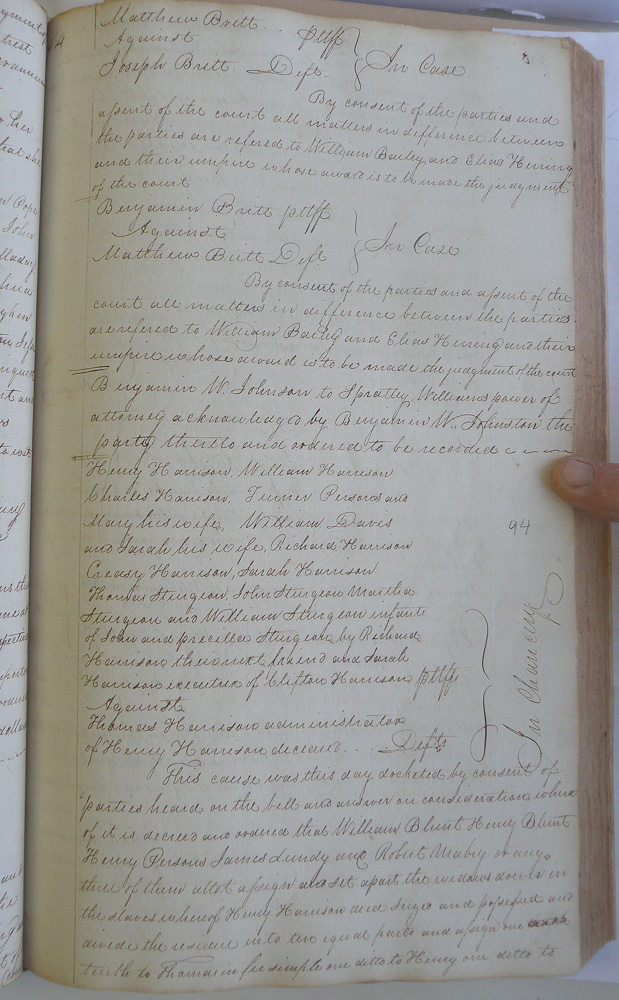 Matthew Britt pltff
Against
Joseph Britt Deft. In Case
By consent of the parties and
assent of the court all matters in difference between
the parties are refered to William Bailey and Elias Hering
and their umpire whose award is to be made the judgment
of the court
Benjamin Britt pltff
Against
Matthew Britt Deft In Case
By consent of the parties and assent of the
court all matters in difference between the parties
are refered to William Bailey and Elias Hering and their
umpire whose award is to be made the judgment of the court
Benjamin W. Johnson to Spratley Williams power of
attorney acknowledged by Benjamin W. Johnston the
party thereto and ordered to be recorded
Henry Harrison, William Harrison
Charles Harrison, Turner Persons and
Mary his wife, William Davis
and Sarah his wife, Richard Harrison
Creasy Harrison, Sarah Harrison
Thomas Sturgeon, John Sturgeon Martha
Sturgeon and William Sturgeon infants
of John and precilla Sturgeon by Richard
Harrison their next friend and Sarah
Harrison executrix of Clifton Harrison pltffs
Against
Thomas Harrison administrator
of Henry Harrison deceasd... Defts
In Chancery
94
This cause was this day docketed by consent of
parties heard on the bill and answer on consideration where
of it is decreed and ordered that William Blunt Henry Blunt
Henry Persons James Lundy and Robert Mabry or any
three of them allot assign and set apart the widows dower in
the slaves whereof Henry Harrison died seized and possessed and
divide the residue into ten equal parts and assign one
tenth to Thomas in fee simple one ditto to Henry one ditto to